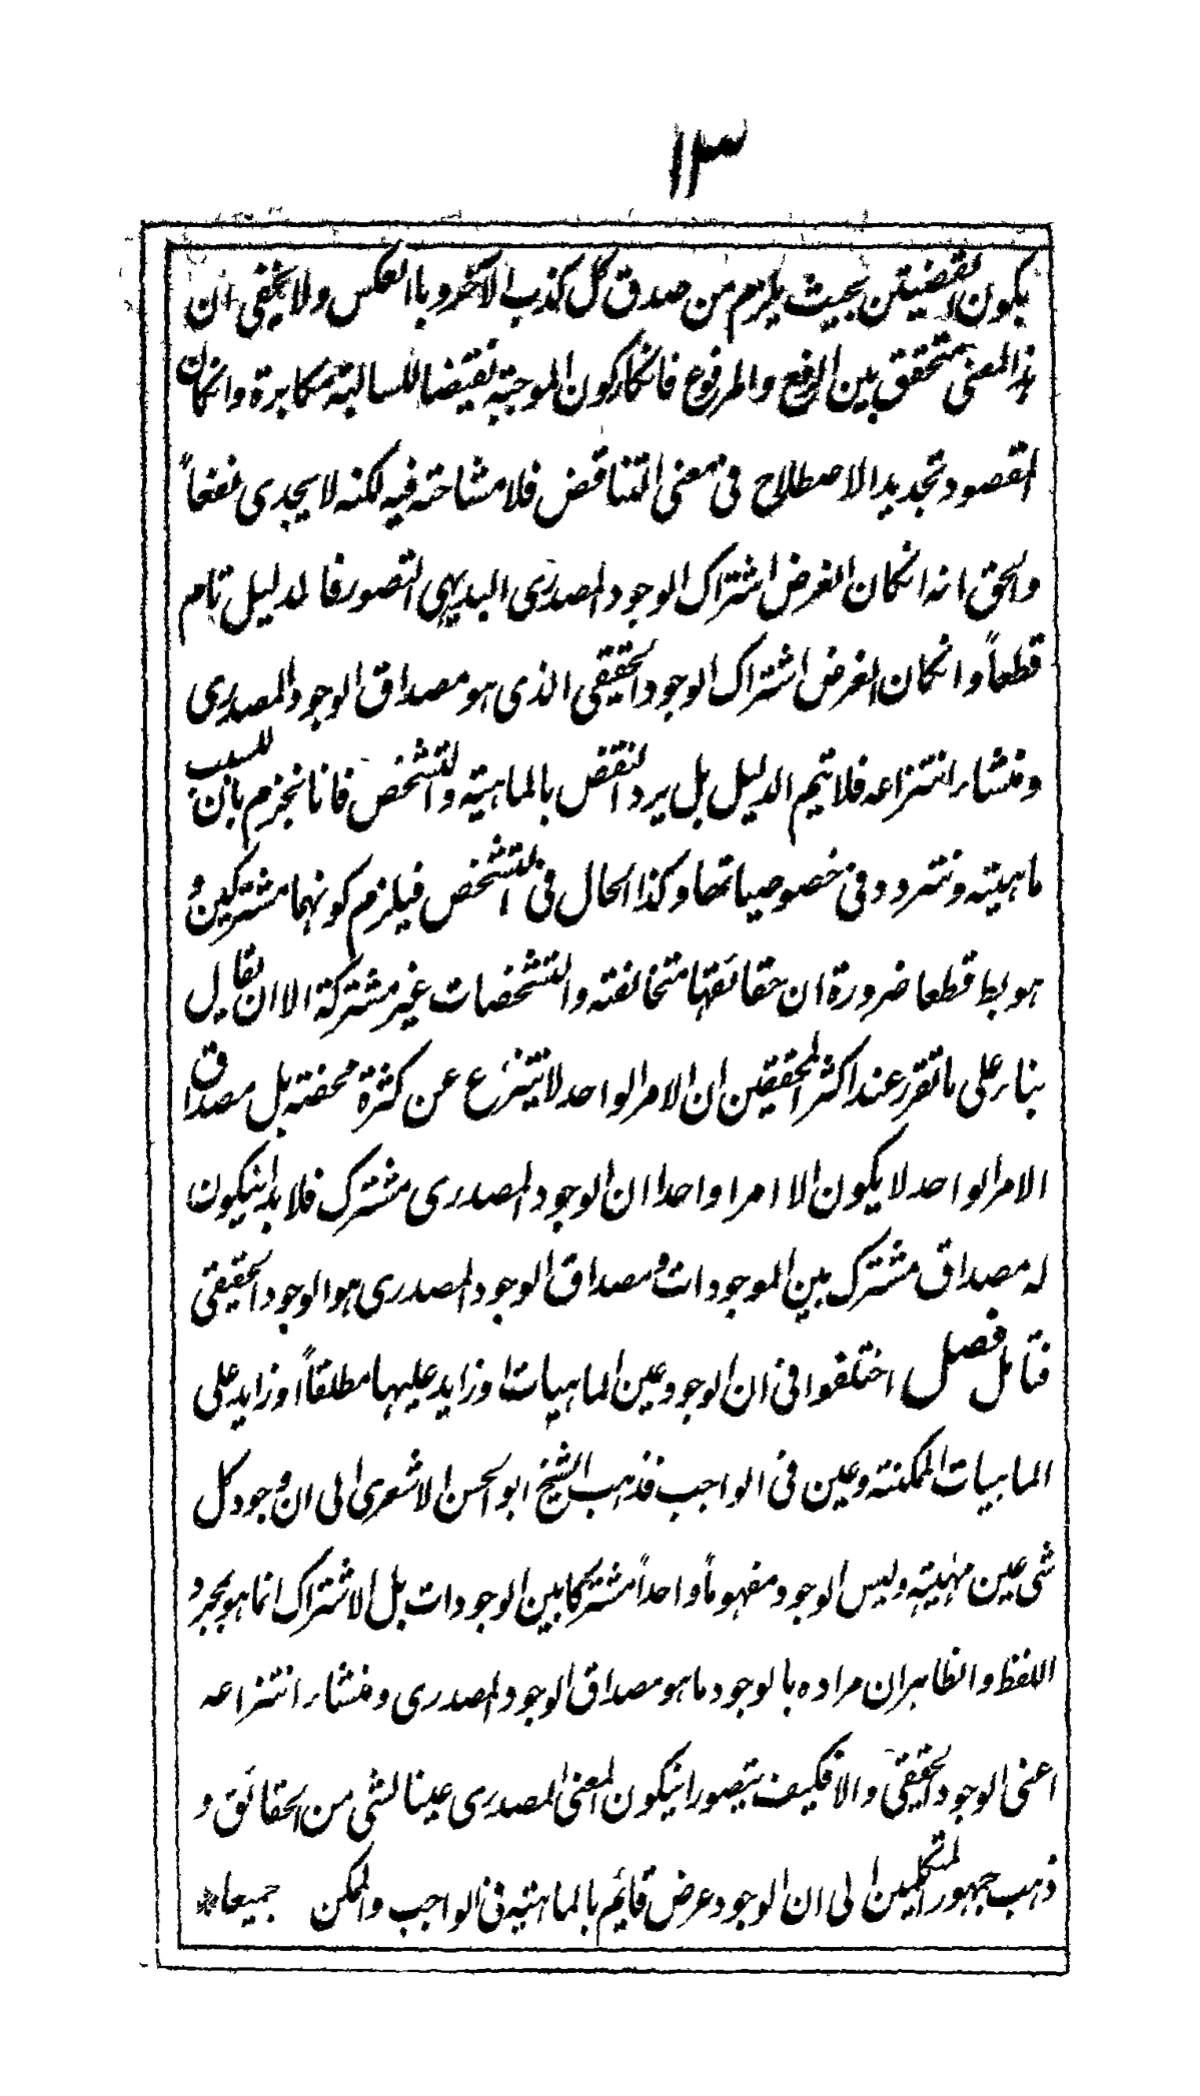 ١٣
يكون القضيتين بحيث يلزم من صدق كل كذب الآخر وبالعكس ولا يخفى ان
هذا المعنى متحقق بين الرفع والمرفوع فانكار كون الموجبة نقيضا للسالبة مكابرة وانكان
المقصود تجديد الاصطلاح فى معنى التناقض فلا مشاحته فيه لكنه لا يجدى نفعاً
والحق انه انكان الغرض اشتراك الوجود المصدرى البديهى التصور فالدليل تام
قطعاً وانكان الغرض اشتراك الوجود الحقيقى الذى هو مصداق الوجود المصدرى
ومنشاء انتزاعه فلا يتم الدليل بل يرد النقض بالماهية والتشخص فانا نجزم بان للسبب
ماهيته ونتردد فى خصوصياتها وكذا الحال فى التشخص فيلزم كونهما مشتركين و
هو بط قطعا ضرورة ان حقائقها متخالفته والتشخصات غير مشتركة الا ان يقال
بناء على ما تقرر عند اكثر المحققين ان الامر الواحد لا ينتزع عن كثرة محضته بل مصداق
الامر الواحد لا يكون الا امرا واحدا ان الوجود المصدرى مشترك فلا بد انيكون
له مصداق مشترك بين الموجودات ومصداق الوجود المصدرى هو الوجود الحقيقى
فتأمل فصل اختلفوا فى ان الوجود عين الماهيات او زايد عليها مطلقاً او زايد على
الماهيات الممكنته وعين فى الواجب فذهب الشيخ ابو الحسن الاشعرى الى ان وجود كل
شى عين مهيته وليس الوجود مفهوماً واحداً مشتركا بين الوجودات بل الاشتراك انما هو بمجرد
اللفظ والظاهر ان مراده بالوجود ما هو مصداق الوجود المصدرى ومنشاء انتزاعه
اعنى الوجود الحقيقى والا فكيف يتصور انيكون المعنى المصدرى عينا لشى من الحقائق و
ذهب جمهور المتكلمين الى ان الوجود عرض قايم بالماهية فى الواجب والممكن جميعا*